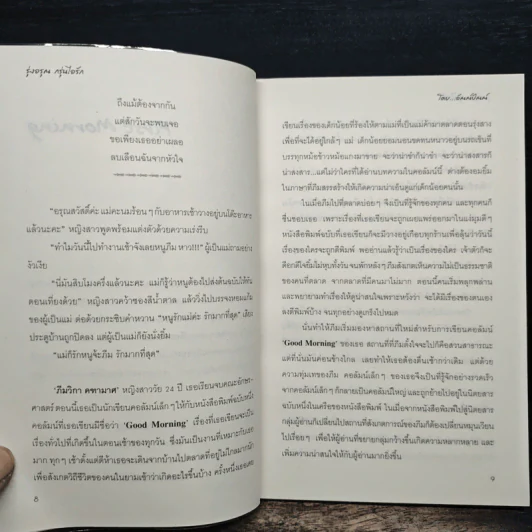 รุ่งอรุณ กรุ่นไอรัก
ถึงแม้ต้องจากกัน
แต่สักวันจะพบเจอ
ขอเพียงเธออย่าเผลอ
ลบเลือนฉันจากหัวใจ
"อรุณสวัสดิ์ค่ะ แม่คะนมร้อนๆ กับอาหารเช้าวางอยู่บนโต๊ะอาหาร
แล้วนะคะ" หญิงสาวพูดพร้อมแต่งตัวด้วยความเร่งรีบ
"ทำไมวันนี้ไปทำงานเช้าจังเลยหนูภีม หาว!!!" ผู้เป็นแม่ถามอย่าง
งัวเงีย
"นี่มันสิบโมงครึ่งแล้วนะคะ แม่ก็รู้ว่าหนูต้องไปส่งต้นฉบับให้ทัน
ตอนเที่ยงด้วย" หญิงสาวคว้าซองสีน้ำตาล แล้ววิ่งไปบรรจงหอมแก้ม
ของผู้เป็นแม่ ต่อด้วยกระซิบคำหวาน "หนูรักแม่ค่ะ รักมากที่สุด" เสียง
ประตูบ้านถูกปิดลง แต่ผู้เป็นแม่ก็ยังนั่งยิ้ม
"แม่ก็รักหนูจ้ะภีม รักมากที่สุด"
'ภีมวิภา คฑามาศ' หญิงสาววัย 24 ปี เธอเรียนจบคณะอักษร
ศาสตร์ ตอนนี้เธอเป็นนักเขียนคอลัมน์เล็กๆ ให้กับหนังสือพิมพ์ฉบับหนึ่ง
คอลัมน์ที่เธอเขียนมีชื่อว่า 'Good Morning' เรื่องที่เธอเขียนจะเป็น
เรื่องทั่วไปที่เกิดขึ้นในตอนเช้าของทุกวัน ซึ่งมันเป็นงานที่เหมาะกับเธอ
มาก ทุกๆ เช้าตั้งแต่ตีห้าเธอจะเดินจากบ้านไปตลาดที่อยู่ไม่ไกลมากนัก
เพื่อสังเกตวิถีชีวิตของคนในยามเช้าว่าเกิดอะไรขึ้นบ้าง ครั้งหนึ่งเธอเคย
8
โดย...
เขียนเรื่องของเด็กน้อยที่ร้องไห้ตามแม่ที่เป็นแม่ค้ามาตลาดตอนรุ่งสาง
เพื่อที่จะได้อยู่ใกล้ๆ แม่ เด็กน้อยยอมนอนขดทนหนาวอยู่บนรถเข็นที่
บรรทุกหม้อข้าวหม้อแกงมาขาย จะว่าน่าขำก็น่าขำ จะว่าน่าสงสารก็
น่าสงสาร...แต่ไม่ว่าใครที่ได้อ่านบทความในคอลัมน์นี้ ต่างต้องอมยิ้ม
ในภาษาที่ภีมสรรสร้างให้เกิดความน่าเอ็นดูแก่เด็กน้อยคนนั้น
ในเมื่อภีมไปที่ตลาดบ่อยๆ จึงเป็นที่รู้จักของทุกคน และทุกคนก็
ชื่นชอบเธอ เพราะเรื่องที่เธอเขียนจะถูกเผยแพร่ออกมาในแง่มุมดีๆ
หนังสือพิมพ์ฉบับที่เธอเขียนก็จะมีวางอยู่เกือบทุกร้านเพื่อลุ้นว่าวันนี้
เรื่องของใครจะถูกตีพิมพ์ พออ่านแล้วรู้ว่าเป็นเรื่องของใคร เจ้าตัวก็จะ
ดีอกดีใจยิ้มไม่หุบทั้งวัน จนพักหลังๆ ภีมสังเกตเห็นความไม่เป็นธรรมชาติ
ของคนที่ตลาด จากตลาดที่มีคนมาไม่มาก ตอนนี้คนเริ่มพลุกพล่าน
และพยายามทำเรื่องให้ดูน่าสนใจเพราะหวังว่า จะได้มีเรื่องของตนเอง
ลงตีพิมพ์บ้าง จนทุกอย่างดูเกร็งไปหมด
นั่นทำให้ภีมเริ่มมองหาสถานที่ใหม่สำหรับการเขียนคอลัมน์
'Good Morning' ของเธอ สถานที่ที่ภีมตั้งใจจะไปก็คือสวนสาธารณะ
แต่ที่นั่นมันค่อนข้างไกล เลยทำให้เธอต้องตื่นเช้ากว่าเดิม แต่ด้วย
ความทุ่มเทของภีม คอลัมน์เล็กๆ ของเธอจึงเป็นที่รู้จักอย่างรวดเร็ว
จากคอลัมน์เล็กๆ ก็กลายเป็นคอลัมน์ใหญ่ และถูกย้ายไปอยู่ในนิตยสาร
ฉบับหนึ่งในเครือของหนังสือพิมพ์ ในเมื่อจากหนังสือพิมพ์ไปสู่นิตยสาร
กลุ่มผู้อ่านก็เปลี่ยนไปสถานที่สังเกตการณ์ของภีมก็ต้องเปลี่ยนหมุนเวียน
ไปเรื่อยๆ เพื่อให้ผู้อ่านที่ขยายกลุ่มกว้างขึ้นเกิดความหลากหลาย และ
เพิ่มความน่าสนใจให้กับผู้อ่านมากยิ่งขึ้น
9